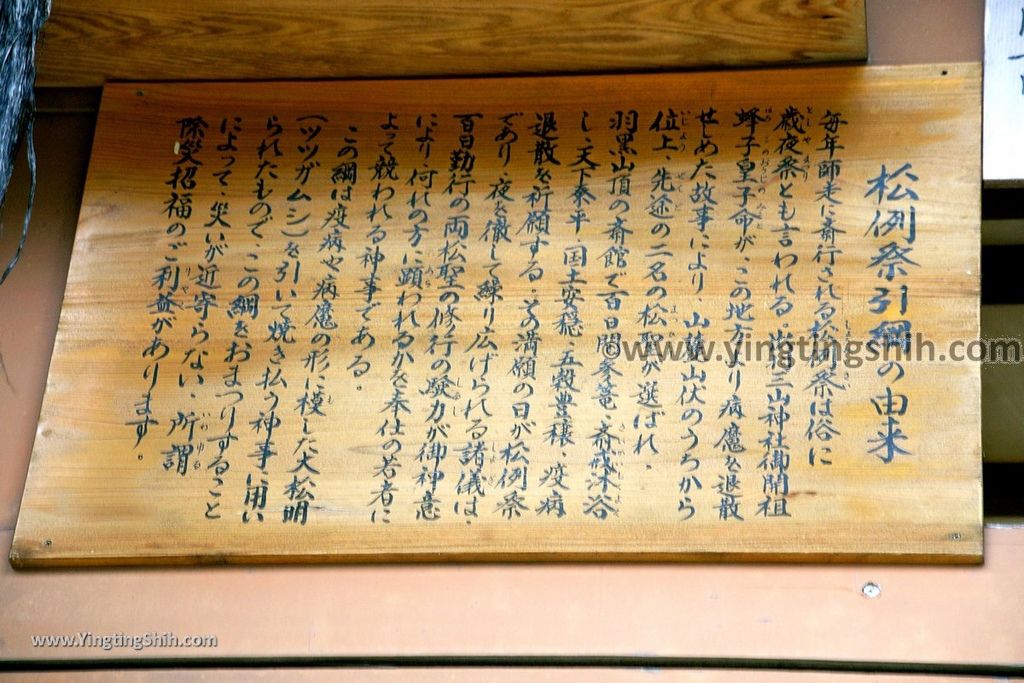 松例祭引綱の由来
毎年師走に斎行される松例祭は俗に
歳夜祭とも言われる。出羽三山神社御開祖
蜂子皇子命が、この地方より病魔を退散
せしめた故事により、山麓山伏のうちから
位上、先途の二名の松聖が選ばれ、
羽黒山頂の斎館で百日間参篭・斎戒沐浴
し、天下泰平・国土安穏・五穀豊穣・疫病
退散を祈願する。その満願の日が松例祭
であり、夜を徹して繰り広げられる諸儀は、
百日勤行の両松聖の修行の験力が御神意
により、何れの方に顕われるかを奉仕の若者に
よって競われる神事である。
この綱は疫病や病魔の形に模した大松明
(ツツガムシ)を引いて焼き払う神事に用い
られたもので、この綱をおまつりすること
によって、災いが近寄らない、所謂
除災招福のご利益があります。
©www.yingtingshih.com
www.YingtingShih.com